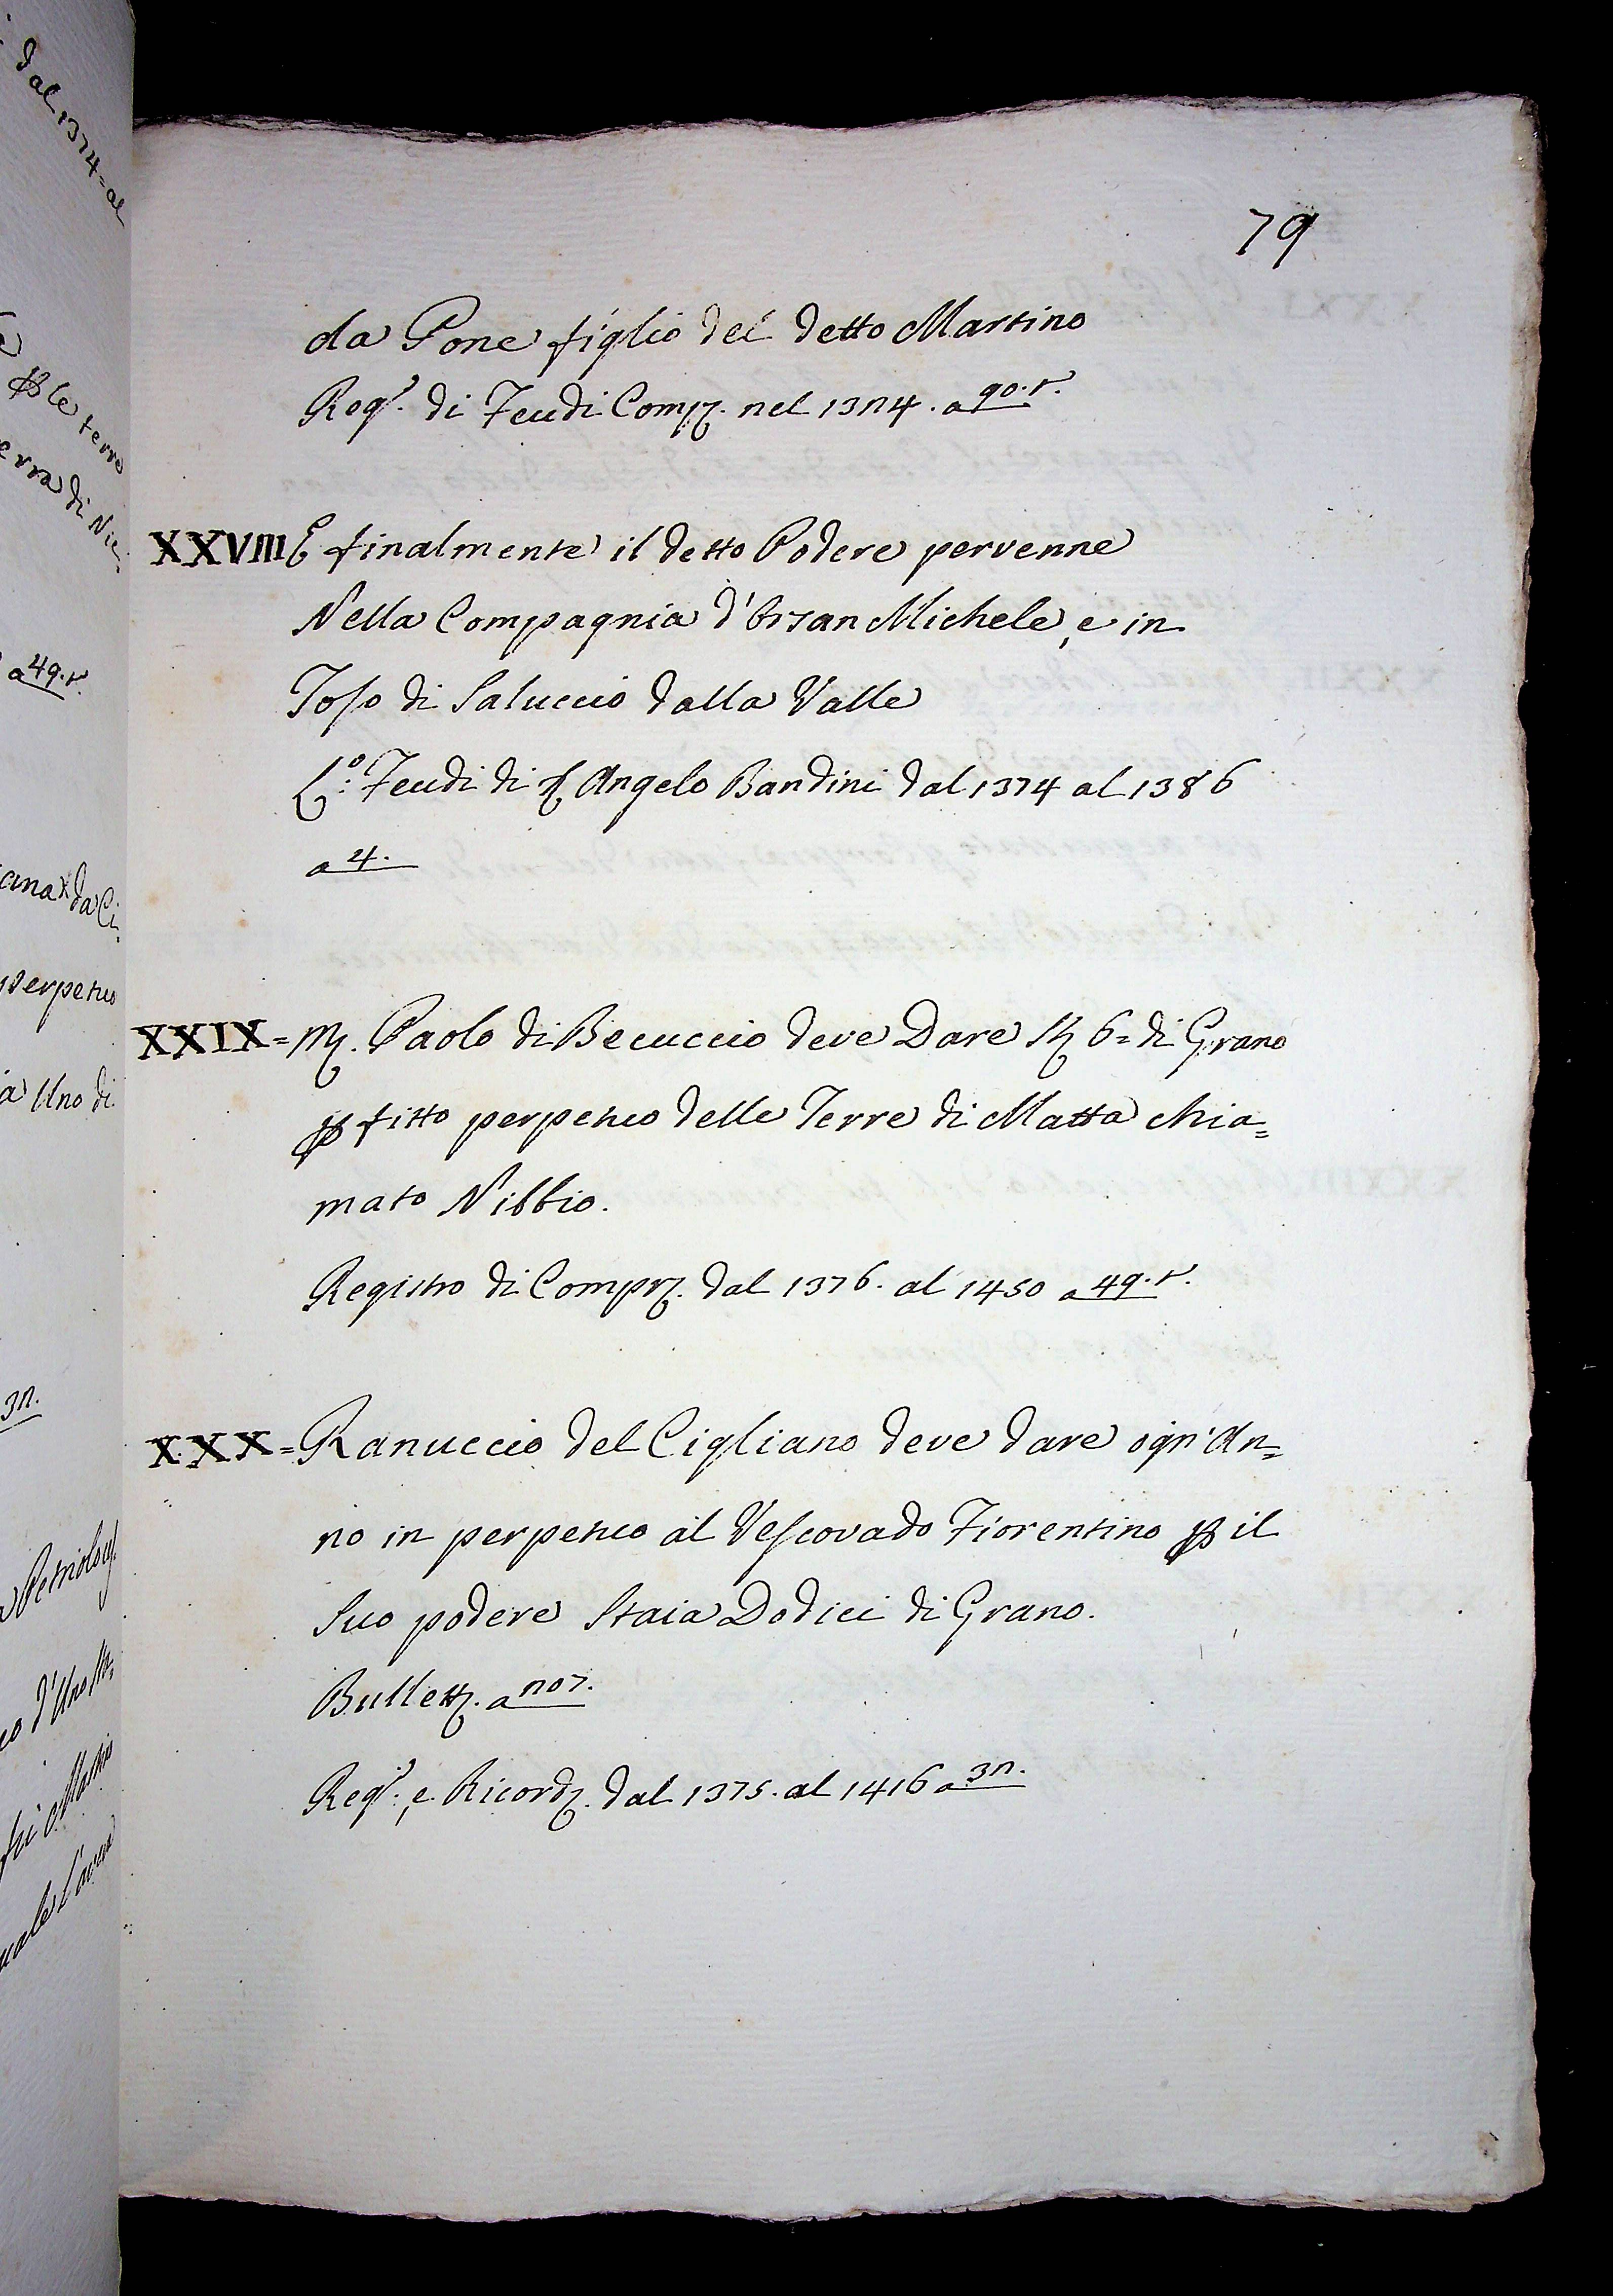 79
da Pone figlio del detto Martino
Reg.º di Feudi Comp. nel 1374. a 90. r.
XXVIII E finalmente il detto Podere pervenne
Nella Compagnia d'Orsan Michele, e in
Toso di Saluccio dalla Valle
L.º: Feudi di S. Angelo Bandini dal 1374 al 1386
a 4.
XXIX = M. Paolo di Becuccio deve Dare St. 6= di Grano
p fitto perpetuo delle Terre di Matta chia=
mato Nibbio.
Registro di Compr. dal 1376. al 1450 a 49. r.
XXX = Ranuccio del Cigliano deve dare ogn'An=
no in perpetuo al Vescovado Fiorentino p il
Suo podere Staia Dodici di Grano.
Bullett. a 107.
Reg.º, e Ricord. dal 1375. al 1416 a 31.
dal 1374= al
p le terre
a 49. r.
ana da Ci=
perpetuo
a Uno di
31.